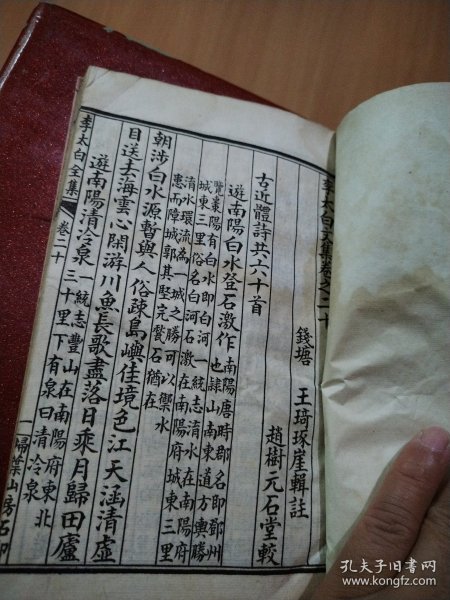 李太白文集卷之二十
錢塘 王琦琢崖輯註
趙樹元石堂較
古近體詩共六十首
遊南陽白水登石激作 南陽唐時郡名即鄧州
也隸山南東道方輿勝
覽棗陽有白水即白河一統志淯水在南陽府
城東三里俗名白河石激在南陽府城東三里
淯水環流為一城之勝可以禦水
患而障城郭其堅完甃石猶在
朝涉白水源暫與人俗疎島嶼佳境色江天涵清虛
目送去海雲心閑游川魚長歌盡落日乘月歸田廬
遊南陽清泠泉 統志豐山在南陽府東北
三十里下有泉曰清泠泉
李太白全集 卷二十 一 掃葉山房石印
孔夫子旧书网
www.kongfz.com